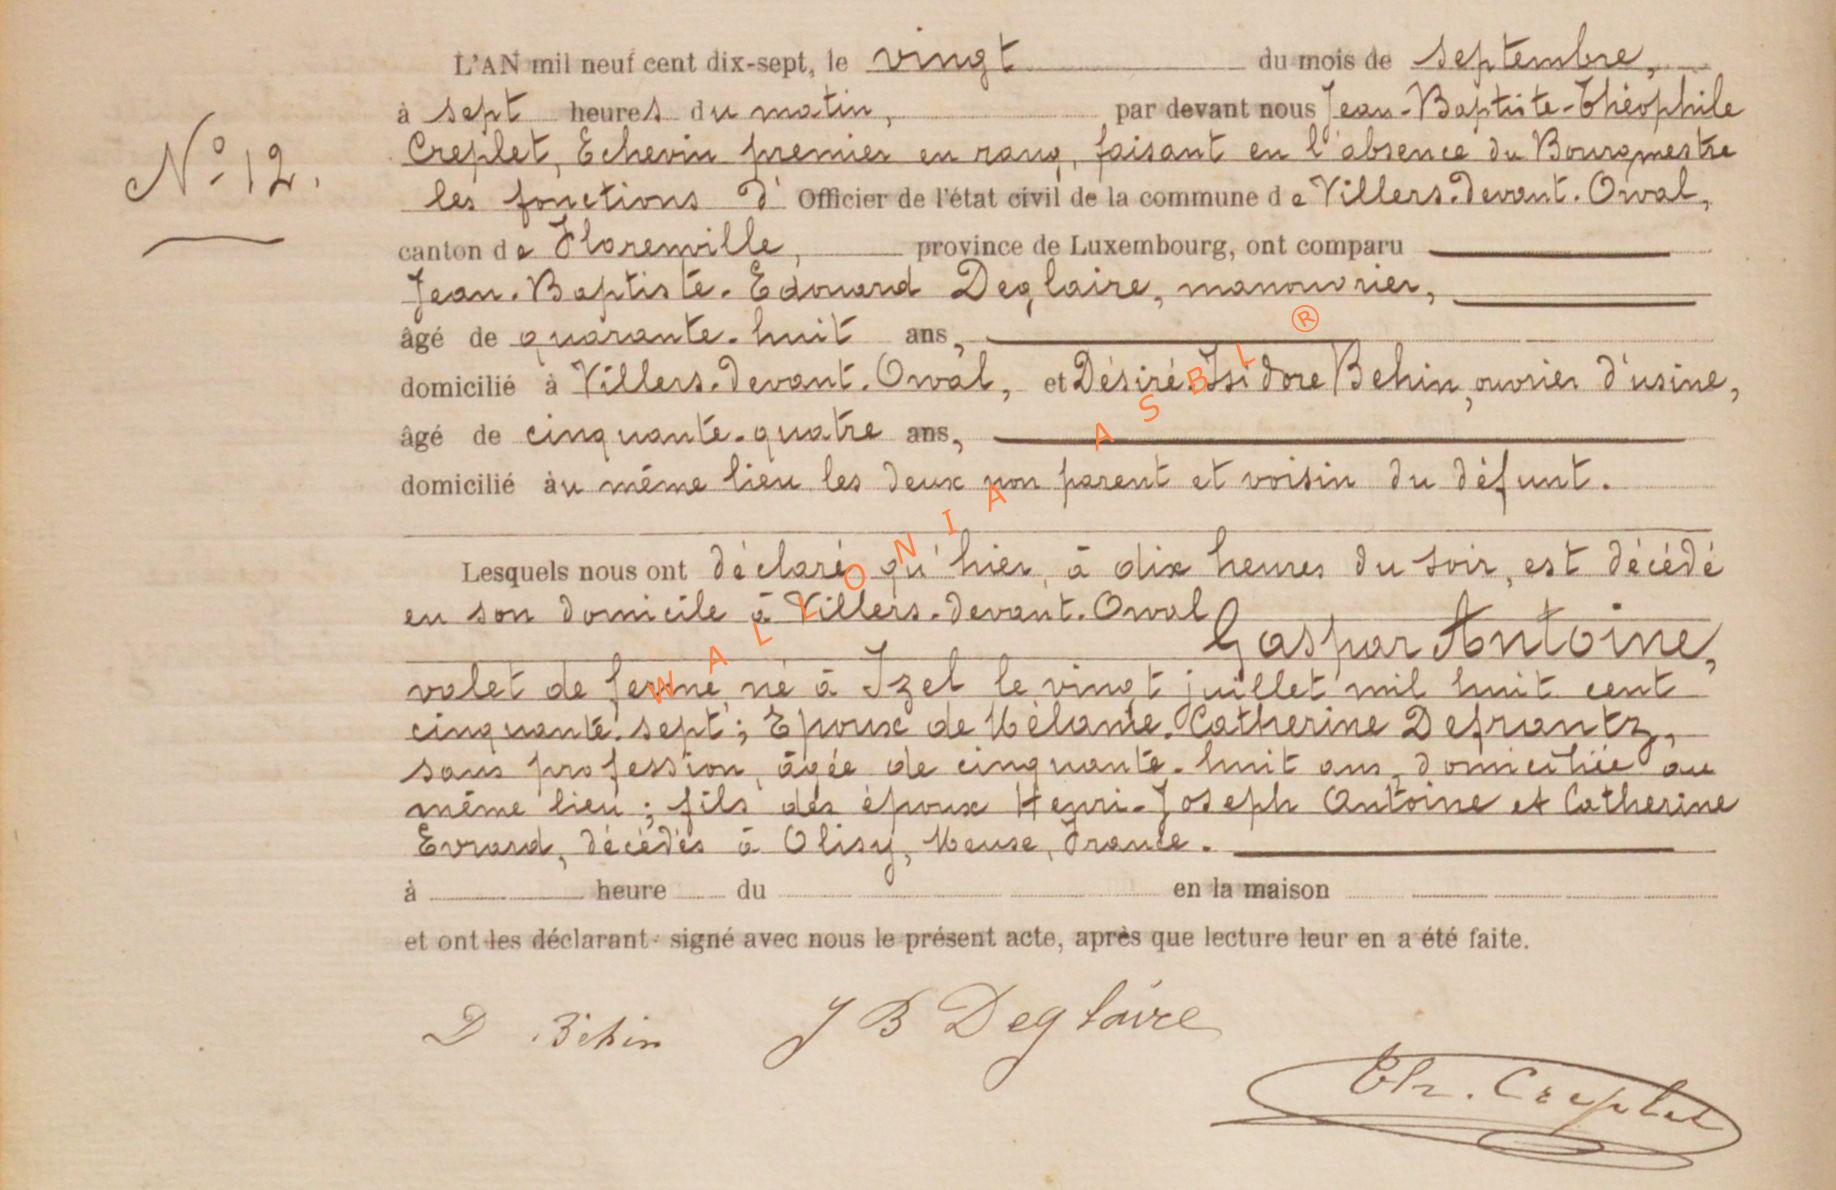 L'AN mil neuf cent dix-sept, le vingt du mois de septembre,
à sept heures du matin, par devant nous Jean-Baptiste-Théophile
N° 12.
Creplet, Echevin premier en rang, faisant en l'absence du Bourgmestre
les fonctions d' Officier de l'état civil de la commune de Villers-devant-Orval,
canton de Florenville, province de Luxembourg, ont comparu
Jean-Baptiste-Edouard Deglaire, manouvrier,
âgé de quarante-huit ans,
domicilié à Villers-devant-Orval, et Désiré Isidore Behin, ouvrier d'usine,
âgé de cinquante-quatre ans,
domicilié au même lieu les deux non parent et voisin du défunt.
Lesquels nous ont déclaré qu'hier, à dix heures du soir, est décédé
en son domicile à Villers-devant-Orval Gaspar Antoine,
valet de ferme, né à Izel le vingt juillet mil huit cent
cinquante-sept; Epoux de Mélanie-Catherine Defrantz,
sans profession, âgée de cinquante-huit ans, domiciliée au
même lieu; fils des époux Henri-Joseph Antoine et Catherine
Evrard, décédés à Olisy, Meuse, France.
à heure du en la maison
et ont les déclarant signé avec nous le présent acte, après que lecture leur en a été faite.
D Béhin J B Deglaire
Th. Creplet
WALLONIA ASBL ®